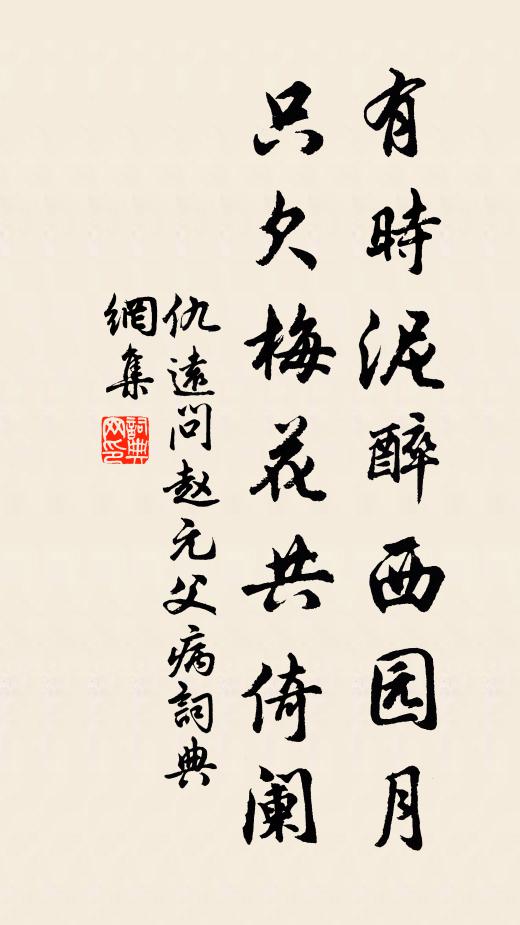 有時泥醉西园月
只欠梅花共倚阑
仇遠问赵元父病詞典
網集
詞典網印